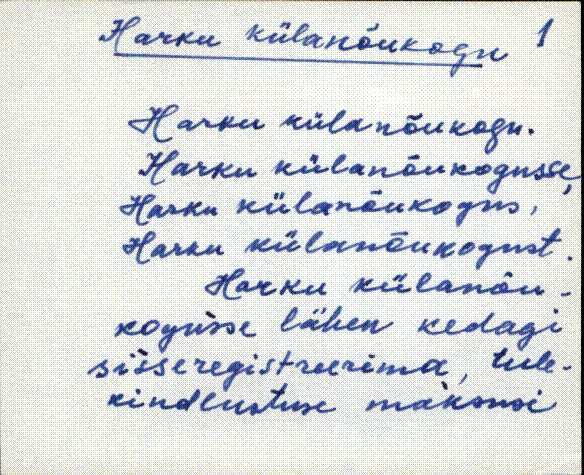 Harku külanõukogu 1
Harku külanõukogu.
Harku külanõukogusse,
Harku külanõukogus,
Harku külanõukogust.
Harku külanõu-
kogusse lähen kedagi
sisseregistreerima, tule-
kindlustuse maksusi